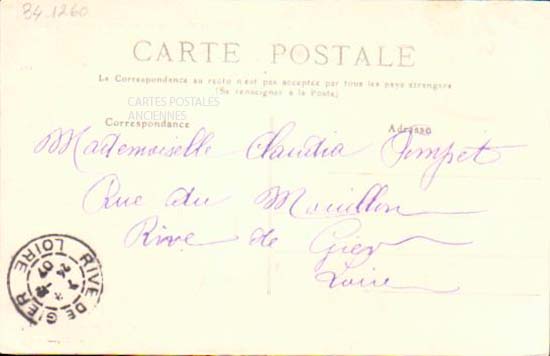 84.1260
CARTE POSTALE
La Correspondance au recto n'est pas acceptée par tous les pays étrangers
(Se renseigner à la Poste)
CARTES POSTALES
ANCIENNES
Correspondance
Adresse
Mademoiselle Claudia Pompet
Rue du Mouillon
Rive de Gier
Loire
RIVE DE GIER
LOIRE
24
07